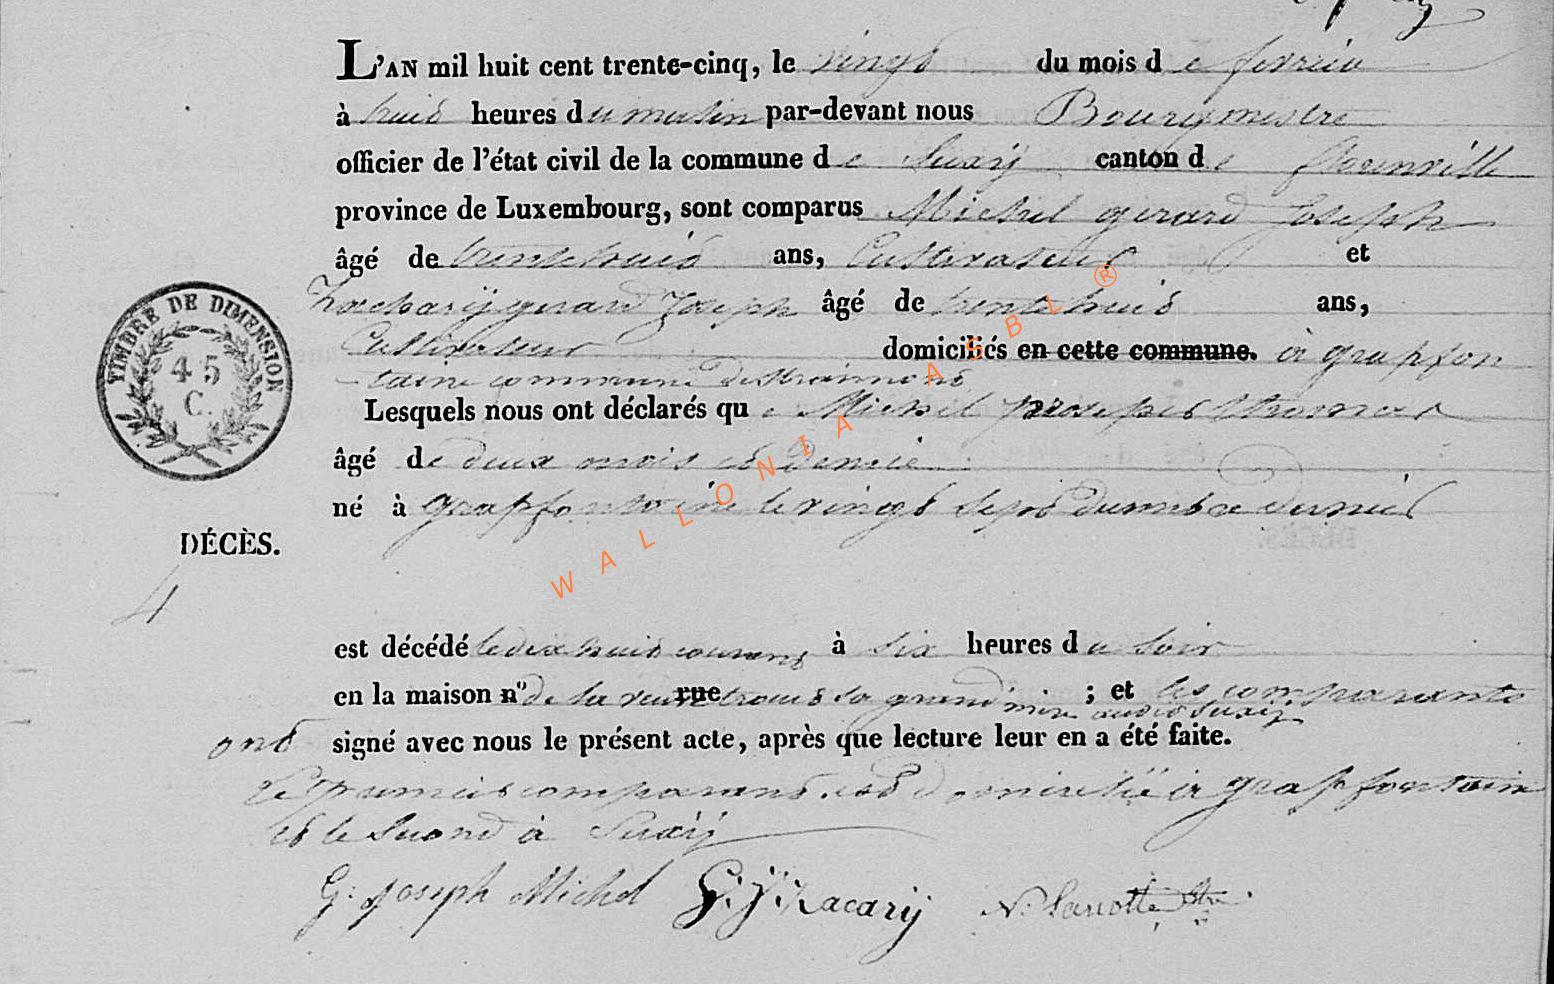 L'AN mil huit cent trente-cinq, le vingt du mois de fevrier
à huit heures du matin par-devant nous Bourgmestre
officier de l'état civil de la commune de Suxÿ canton de florenville
province de Luxembourg, sont comparus Michel gerard Joseph
âgé de trente huit ans, Cultivateur et
Zacharÿ gerard Joseph âgé de trente huit ans,
Cultivateur domiciliés en cette commune. à grapfon
taine commune de Straimont
Lesquels nous ont déclarés que Michel prosper thomas
âgé de deux mois et demie
né à grapfontaine le vingt sept decembre dernier
TIMBRE DE DIMENSION
45
C.
DÉCÈS.
4
est décédé le dix huit courant à six heures du soir
en la maison n° de la veuve rue sa grand mère audit Suxÿ ; et les comparants
ont signé avec nous le présent acte, après que lecture leur en a été faite.
Le premier comparant est domicilié à grapfontaine
et le second à Suxÿ
G: Joseph Michel G. J. Zacarÿ N.
WALLONIA ASBL ®